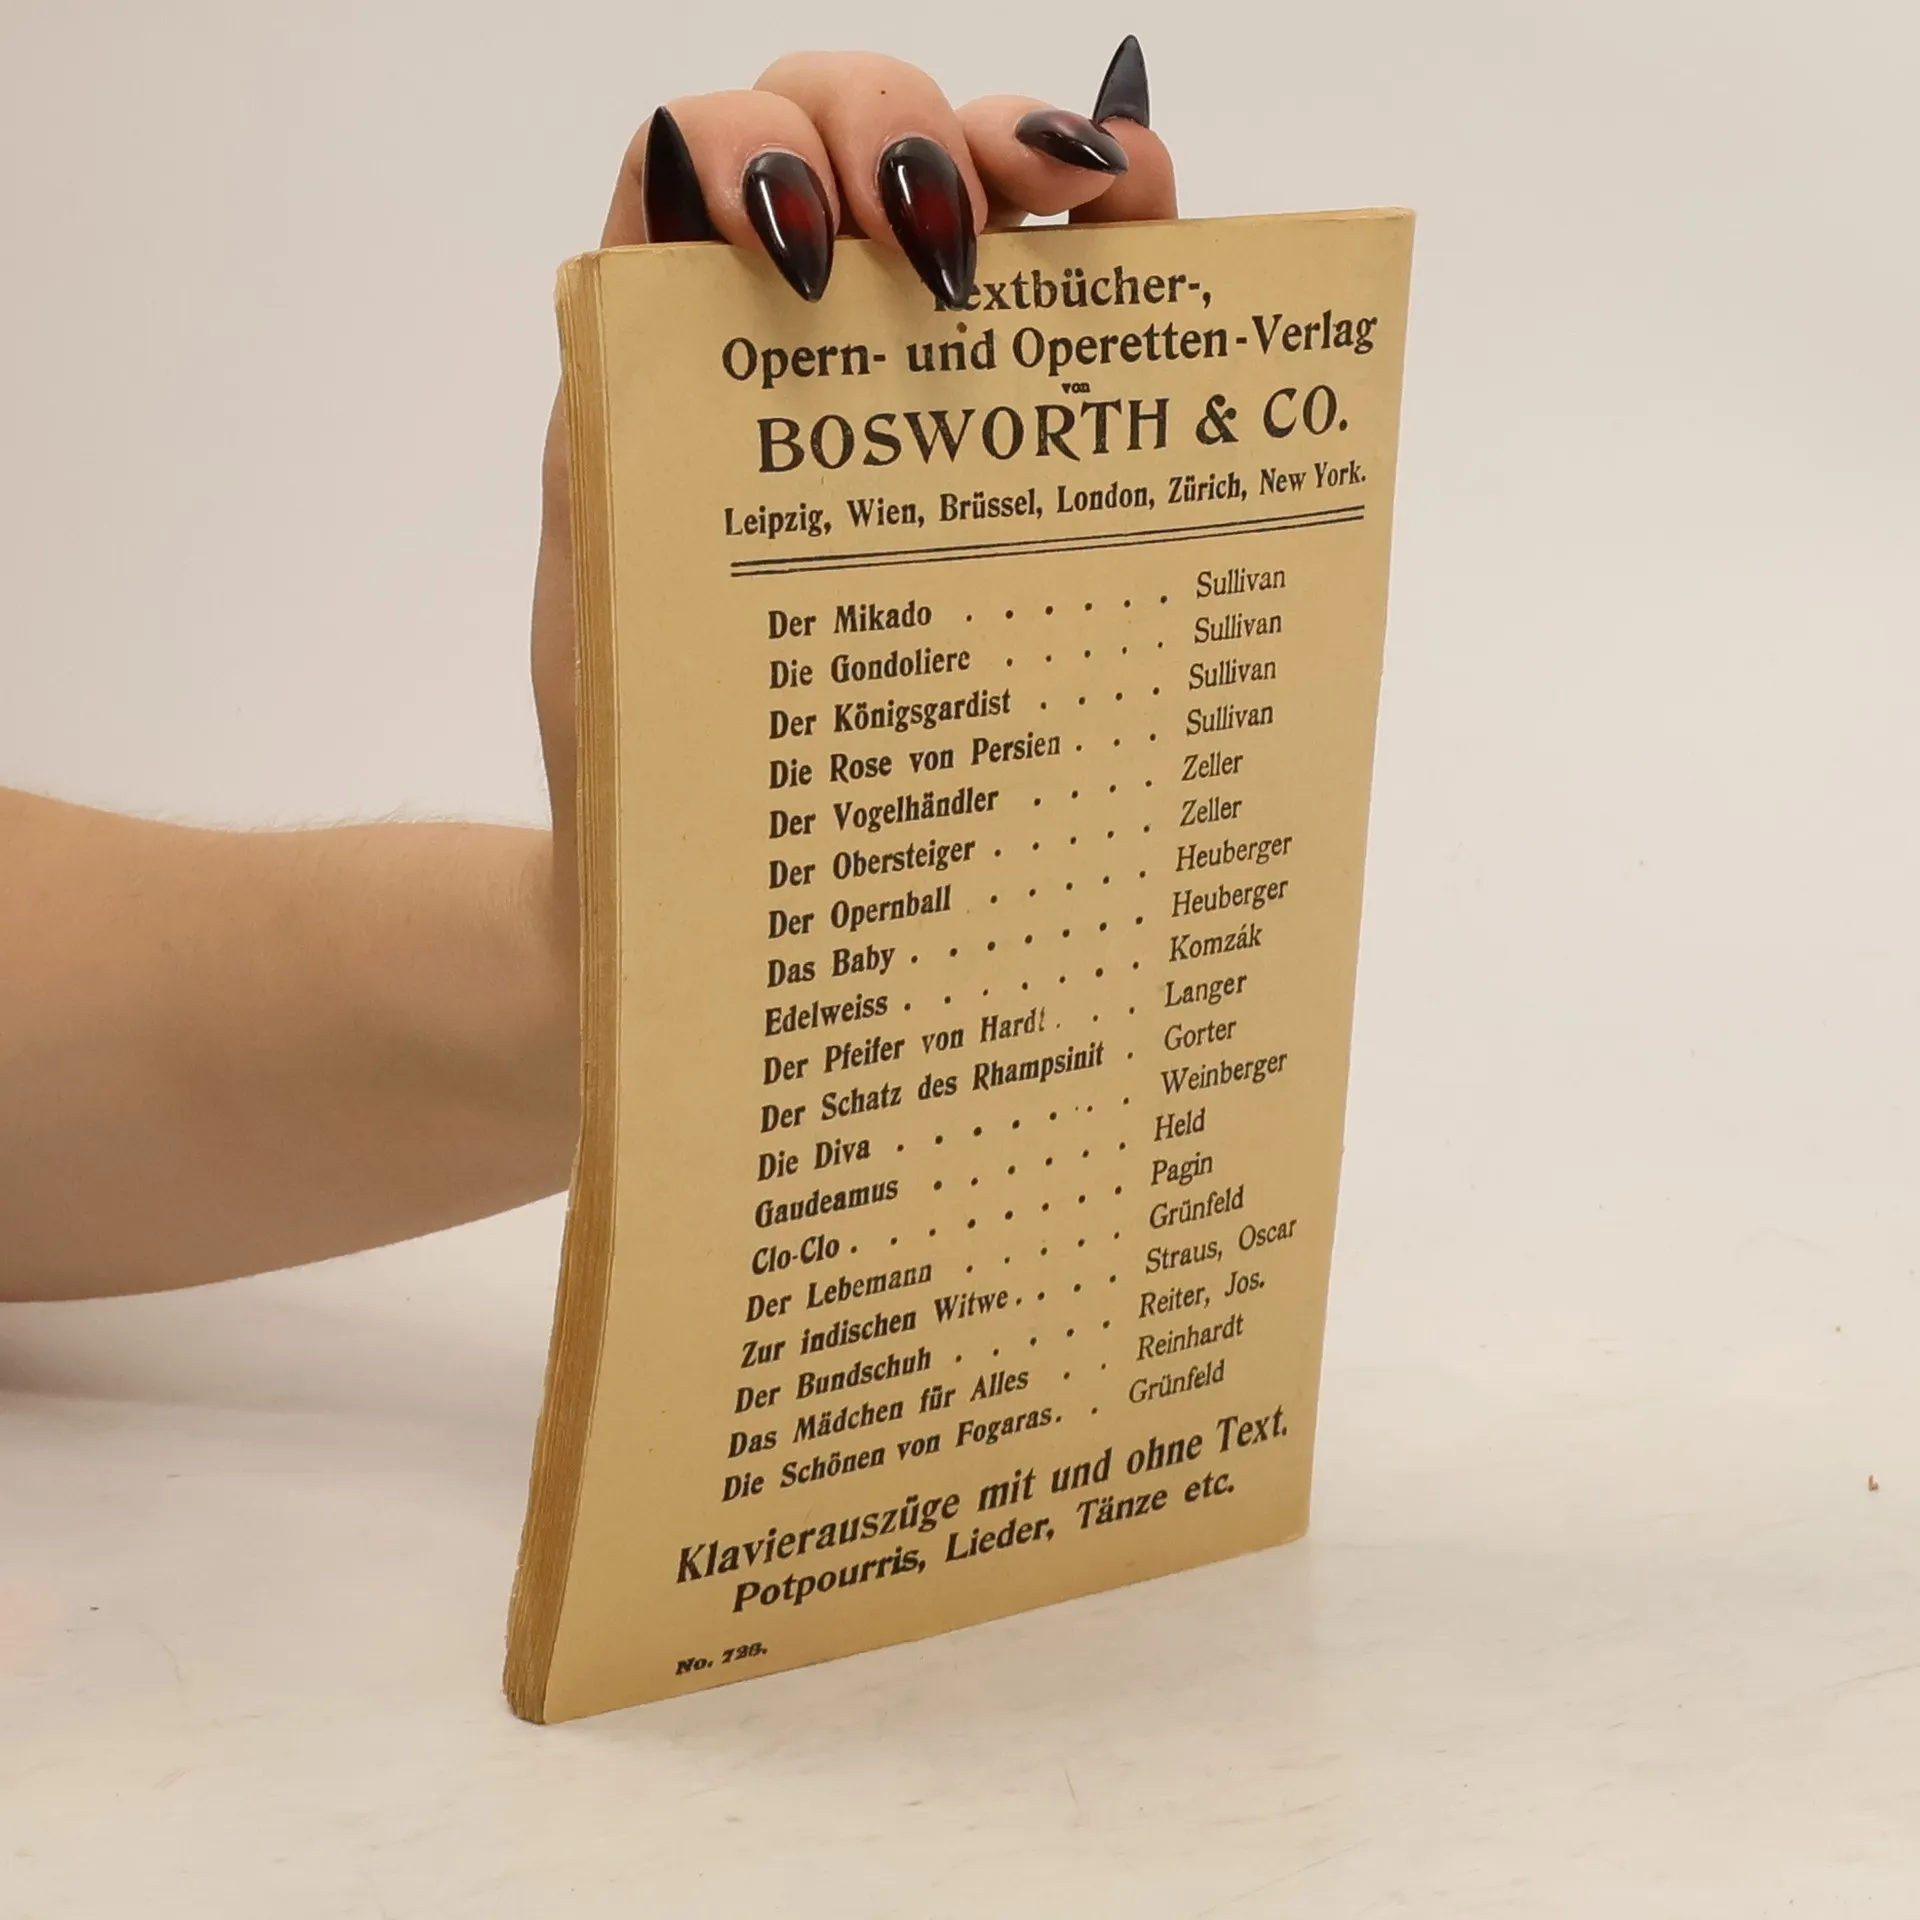 Textbücher-,
Opern- und Operetten-Verlag
von
BOSWORTH & CO.
Leipzig, Wien, Brüssel, London, Zürich, New York.
Der Mikado . . . . . . Sullivan
Die Gondoliere . . . . . Sullivan
Der Königsgardist . . . . Sullivan
Die Rose von Persien . . . Sullivan
Der Vogelhändler . . . . Zeller
Der Obersteiger . . . . . Zeller
Der Opernball . . . . . Heuberger
Das Baby . . . . . . . Heuberger
Edelweiss . . . . . . . Komzák
Der Pfeifer von Hardt . . . Langer
Der Schatz des Rhampsinit . Gorter
Die Diva . . . . . . . Weinberger
Gaudeamus . . . . . . Held
Clo-Clo . . . . . . . . Pagin
Der Lebemann . . . . . Grünfeld
Zur indischen Witwe . . . . Straus, Oscar
Der Bundschuh . . . . . Reiter, Jos.
Das Mädchen für Alles . . Reinhardt
Die Schönen von Fogaras. . Grünfeld
Klavierauszüge mit und ohne Text.
Potpourris, Lieder, Tänze etc.
No. 728.